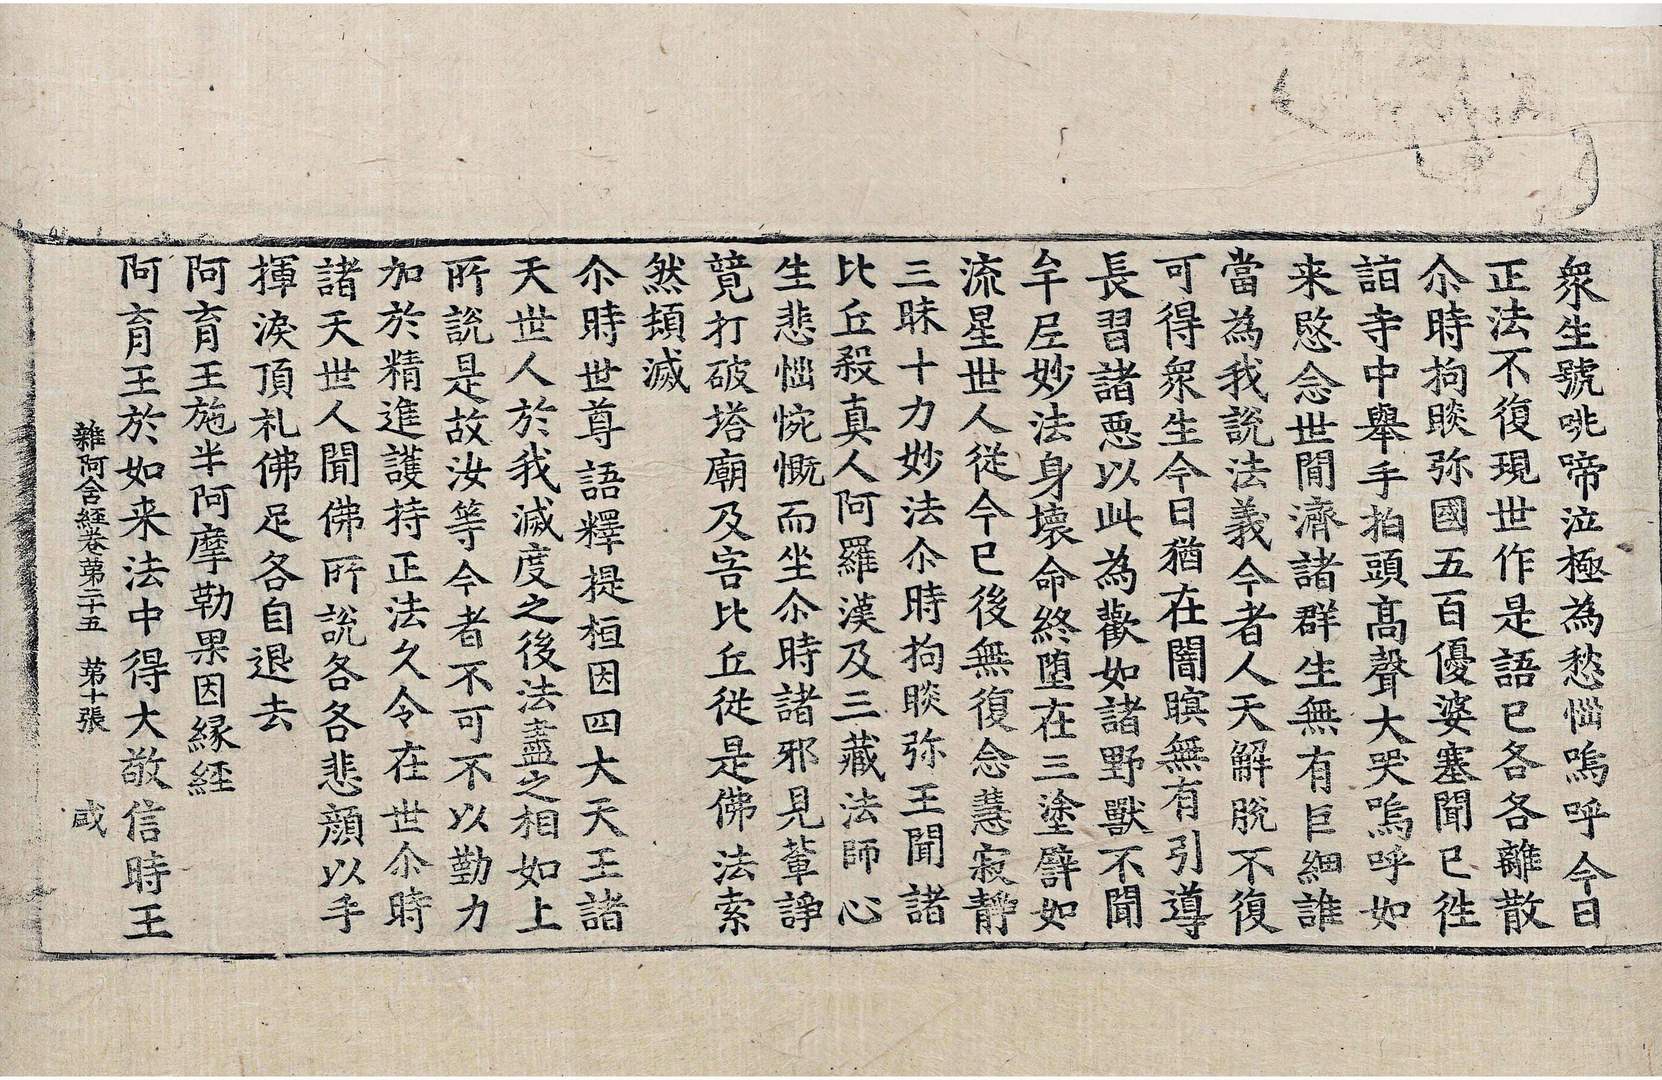 衆生號咷啼泣極為愁惱嗚呼今日
正法不復現世作是語已各各離散
尒時拘睒弥國五百優婆塞聞已往
詣寺中舉手拍頭髙聲大哭嗚呼如
来愍念世間濟諸群生無有巨細誰
當為我說法義今者人天解脫不復
可得衆生今日猶在闇瞑無有引導
長習諸惡以此為歡如諸野獸不聞
牟尼妙法身壞命終墮在三塗譬如
流星世人從今已後無復念慧寂靜
三昧十力妙法尒時拘睒弥王聞諸
比丘殺真人阿羅漢及三藏法師心
生悲惱惋慨而坐尒時諸邪見輩諍
競打破塔廟及害比丘從是佛法索
然頓滅
尒時世尊語釋提桓因四大天王諸
天世人於我滅度之後法盡之相如上
所說是故汝等今者不可不以勤力
加於精進護持正法久令在世尒時
諸天世人聞佛所說各各悲顔以手
揮淚頂礼佛足各自退去
阿育王施半阿摩勒果因緣経
阿育王於如来法中得大敬信時王
雜阿含経卷第二十五　第十張　咸